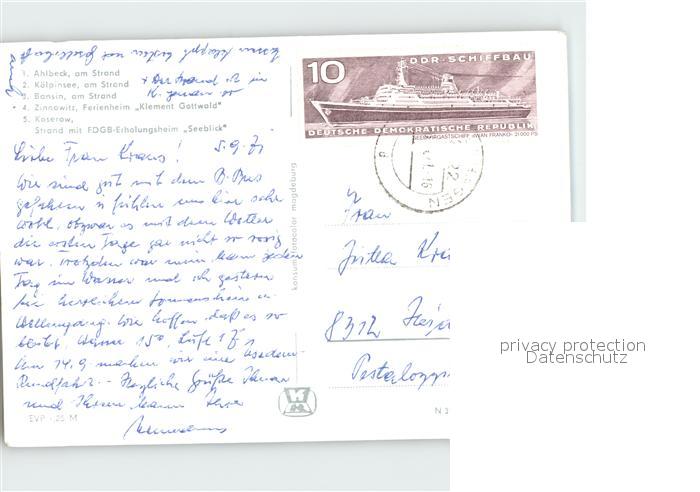 1. Ahlbeck, am Strand
2. Kölpinsee, am Strand
3. Bansin, am Strand
4. Zinnowitz, Ferienheim „Klement Gottwald"
5. Koserow,
Strand mit FDGB-Erholungsheim „Seeblick"
+ Der Strand ist in
K. genau so
Liebe Frau Kraus! 5.9.71
Wir sind gut mit dem B. Bus
gefahren u. fühlen uns hier sehr
wohl, obzwar es mit dem Wetter
die ersten Tage gar nicht so rosig
war. Trotzdem war mein Mann jeden
Tag im Wasser und ich gestern
bei herrlichem Sonnenschein u.
Wellengang. Wir hoffen, daß es so
bleibt. Wasser 15°, Luft
Am 14.9. machen wir eine Usedom-
Rundfahrt. - Herzliche Grüße Ihnen
und Ihrem Mann Ihre
EVP -,25 M
konsum foracolor magdeburg
10
DDR-SCHIFFBAU
DEUTSCHE DEMOKRATISCHE REPUBLIK
SEEFAHRGASTSCHIFF »IWAN FRANKO« 21000 PS
Frau
Jutka
8312
Pestalozzi
N 3
privacy protection
Datenschutz